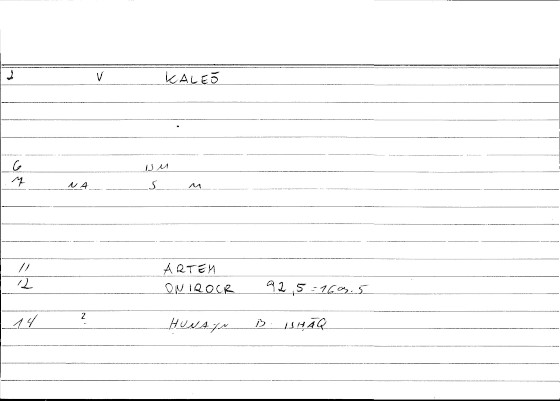 2 V KALEŠ
6 BM
7 NA S M
11 ARTEM
12 ONIROCR 92,5 = 169.5
14 ? HUNAYN B ISHĀQ